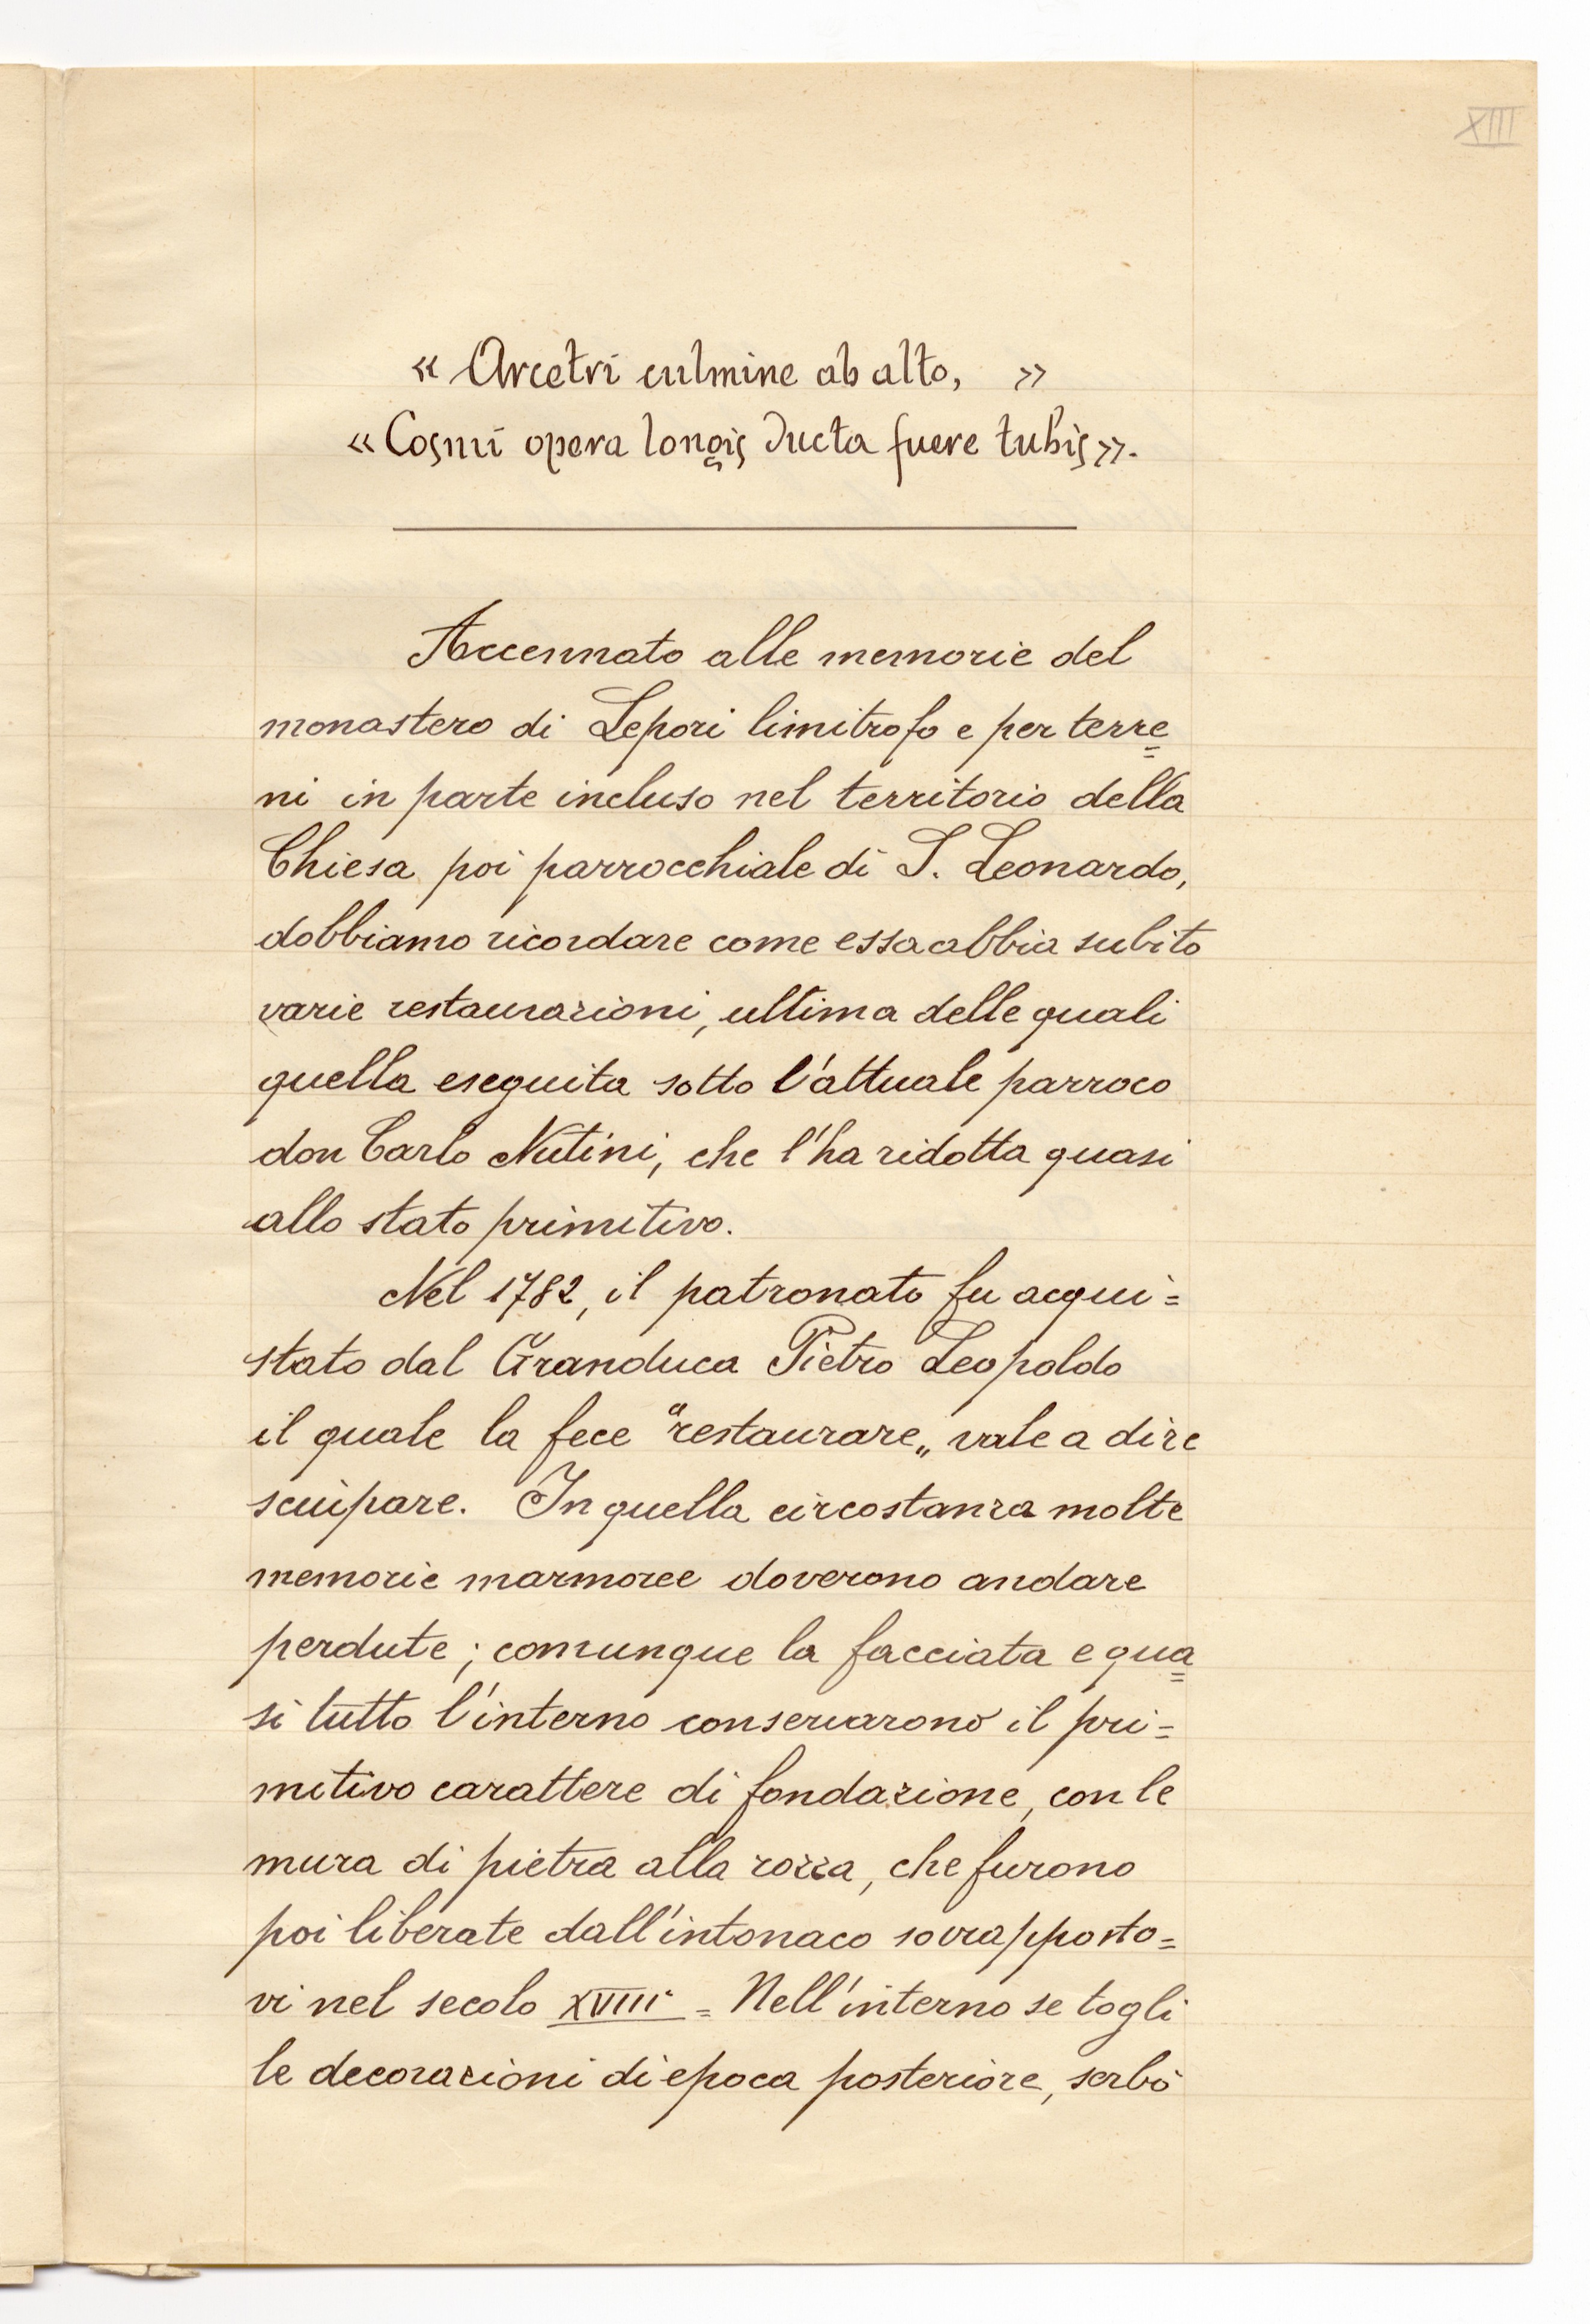 XIII
« Arcetri culmine ab alto, »
« Cosmi opera longis ducta fuere tubis ».
Accennato alle memorie del
monastero di Lepori limitrofo e per terre=
ni in parte incluso nel territorio della
Chiesa poi parrocchiale di S. Leonardo,
dobbiamo ricordare come essa abbia subito
varie restaurazioni, ultima delle quali
quella eseguita sotto l'attuale parroco
don Carlo Nutini, che l'ha ridotta quasi
allo stato primitivo.
Nel 1782, il patronato fu acqui=
stato dal Granduca Pietro Leopoldo
il quale la fece "restaurare„ vale a dire
sciupare. In quella circostanza molte
memorie marmoree doverono andare
perdute; comunque la facciata e qua=
si tutto l'interno conservarono il pri=
mitivo carattere di fondazione, con le
mura di pietra alla rozza, che furono
poi liberate dall'intonaco sovrapposto=
vi nel secolo XVIII° = Nell'interno se togli
le decorazioni di epoca posteriore, serbò